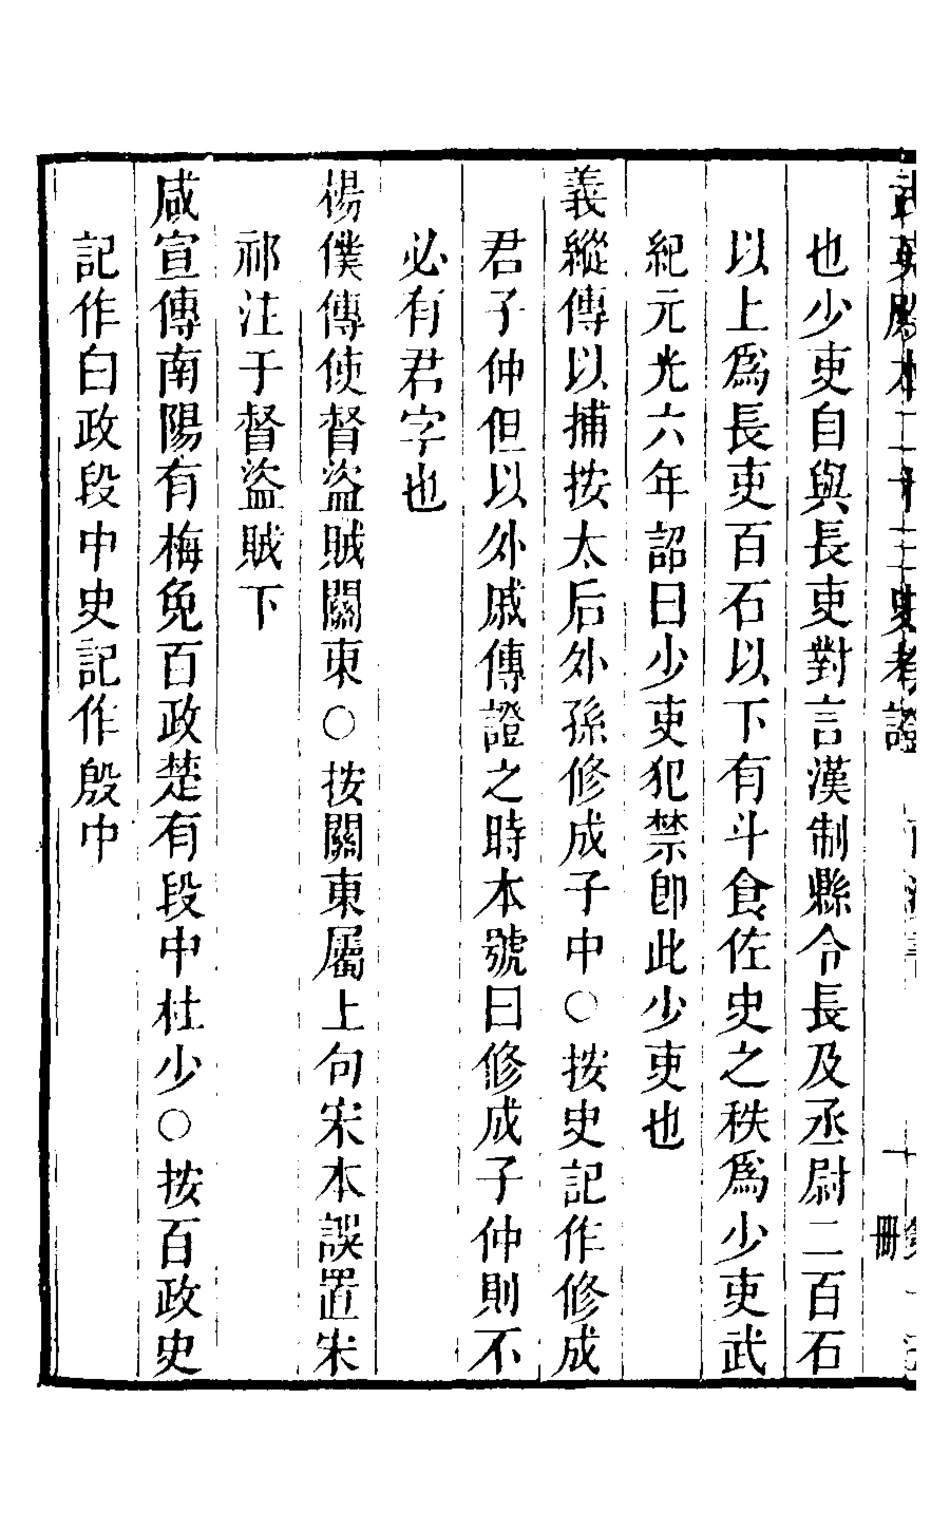 武英殿本二十三史考證
也少吏自與長吏對言漢制縣令長及丞尉二百石
以上爲長吏百石以下有斗食佐史之秩爲少吏武
紀元光六年詔曰少吏犯禁卽此少吏也
義縱傳以捕按太后外孫修成子中○按史記作修成
君子仲但以外戚傳證之時本號曰修成子仲則不
必有君字也
楊僕傳使督盜賊關東○按關東屬上句宋本誤置宋
祁注于督盜賊下
咸宣傳南陽有梅免百政楚有段中杜少○按百政史
記作白政段中史記作殷中